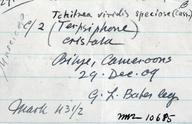 Tchitrea viridis speciosa (Cass.)
c/2 (Terpsiphone)
cristata
Bitye, Cameroons
29. Dec. 09
G. L. Bates leg.
Mark 43 1/2
MVZ 10685